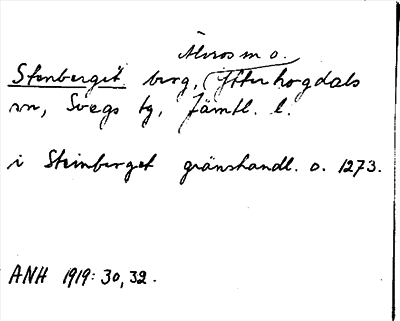 Älvros m o.
Stenberget berg, Ytterhogdals
sn, Svegs tg, Jämtl. l.
i Steinberget gränshandl. o. 1273.
ANH 1919: 30, 32.